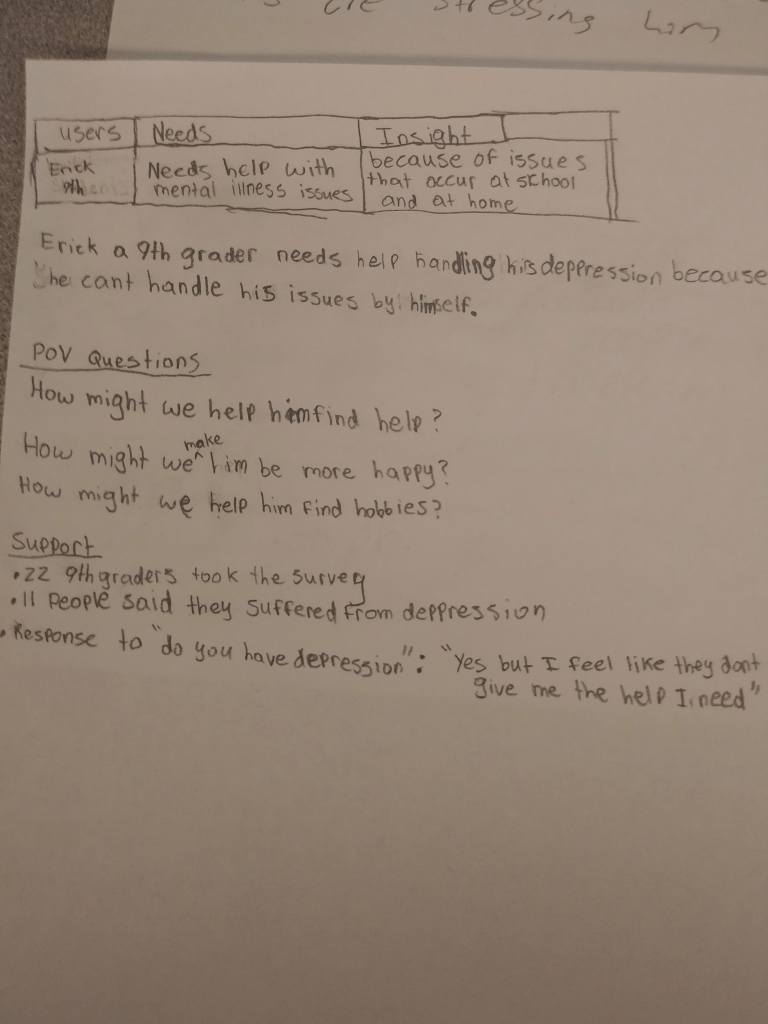 stressing him
users Needs Insight
Erick Needs help with because of issues
9th mental illness issues that occur at school
and at home
Erick a 9th grader needs help handling his deppression because
he cant handle his issues by himself.
POV Questions
How might we help him find help?
make
How might we ^ him be more happy?
How might we help him find hobbies?
Support
•22 9th graders took the survey
•11 People said they suffered from deppression
•Response to "do you have depression": "Yes but I feel like they dont
give me the help I need"